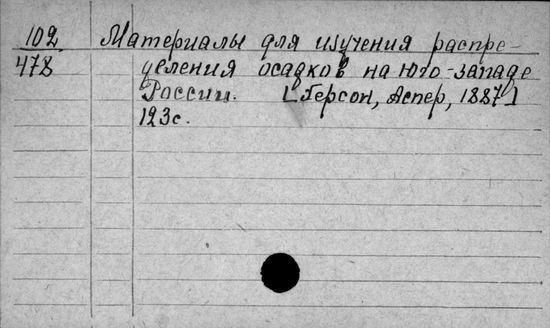 102 Материалы для изучения распре-
478 деления осадков на юго-западе
России. [Херсон, Аспер, 1887]
123с.